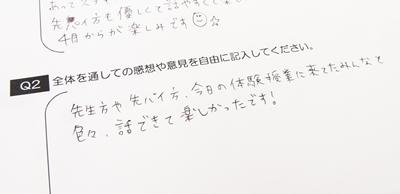 先パイ方も優しくて話やすくて楽し
4月からが楽しみです☺☆
Q2 全体を通しての感想や意見を自由に記入してください。
先生方や先パイ方、今日の体験授業に来てたみんなと
色々、話できて楽しかったです!